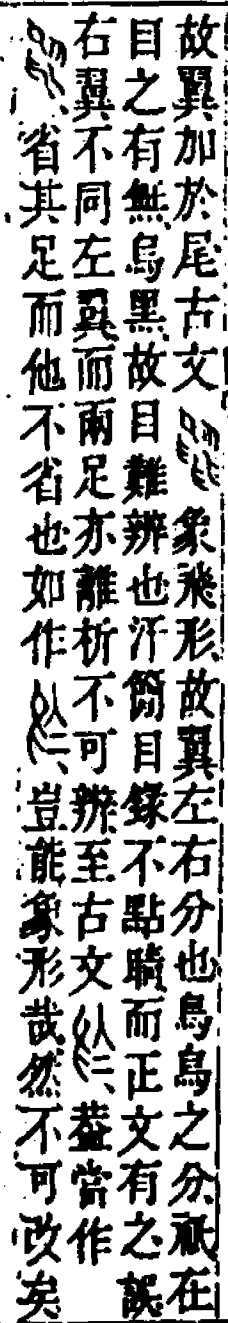 故翼加於尾古文象飛形故翼左右分也鳥烏之分祇在
目之有無烏黑故目難辨也汗簡目錄不點睛而正文有之誤
右翼不同左翼而兩足亦離析不可辨至古文蓋當作
省其足而他不省也如作豈能象形哉然不可改矣